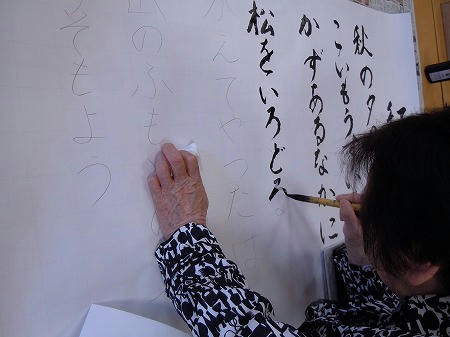 秋の夕
こいもう
かずあるなかに
松をいろどる
えでやつたは
山のふも
そもよう